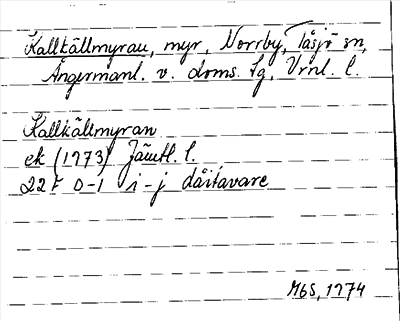 Kallkällmyran, myr, Norrby, Tåsjö sn,
Ångermanl. v. doms. sg, Vrnl. l.
Kallkällmyran
ek (1973) Jämtl. l.
22F 0-1 i-j
MGS, 1974